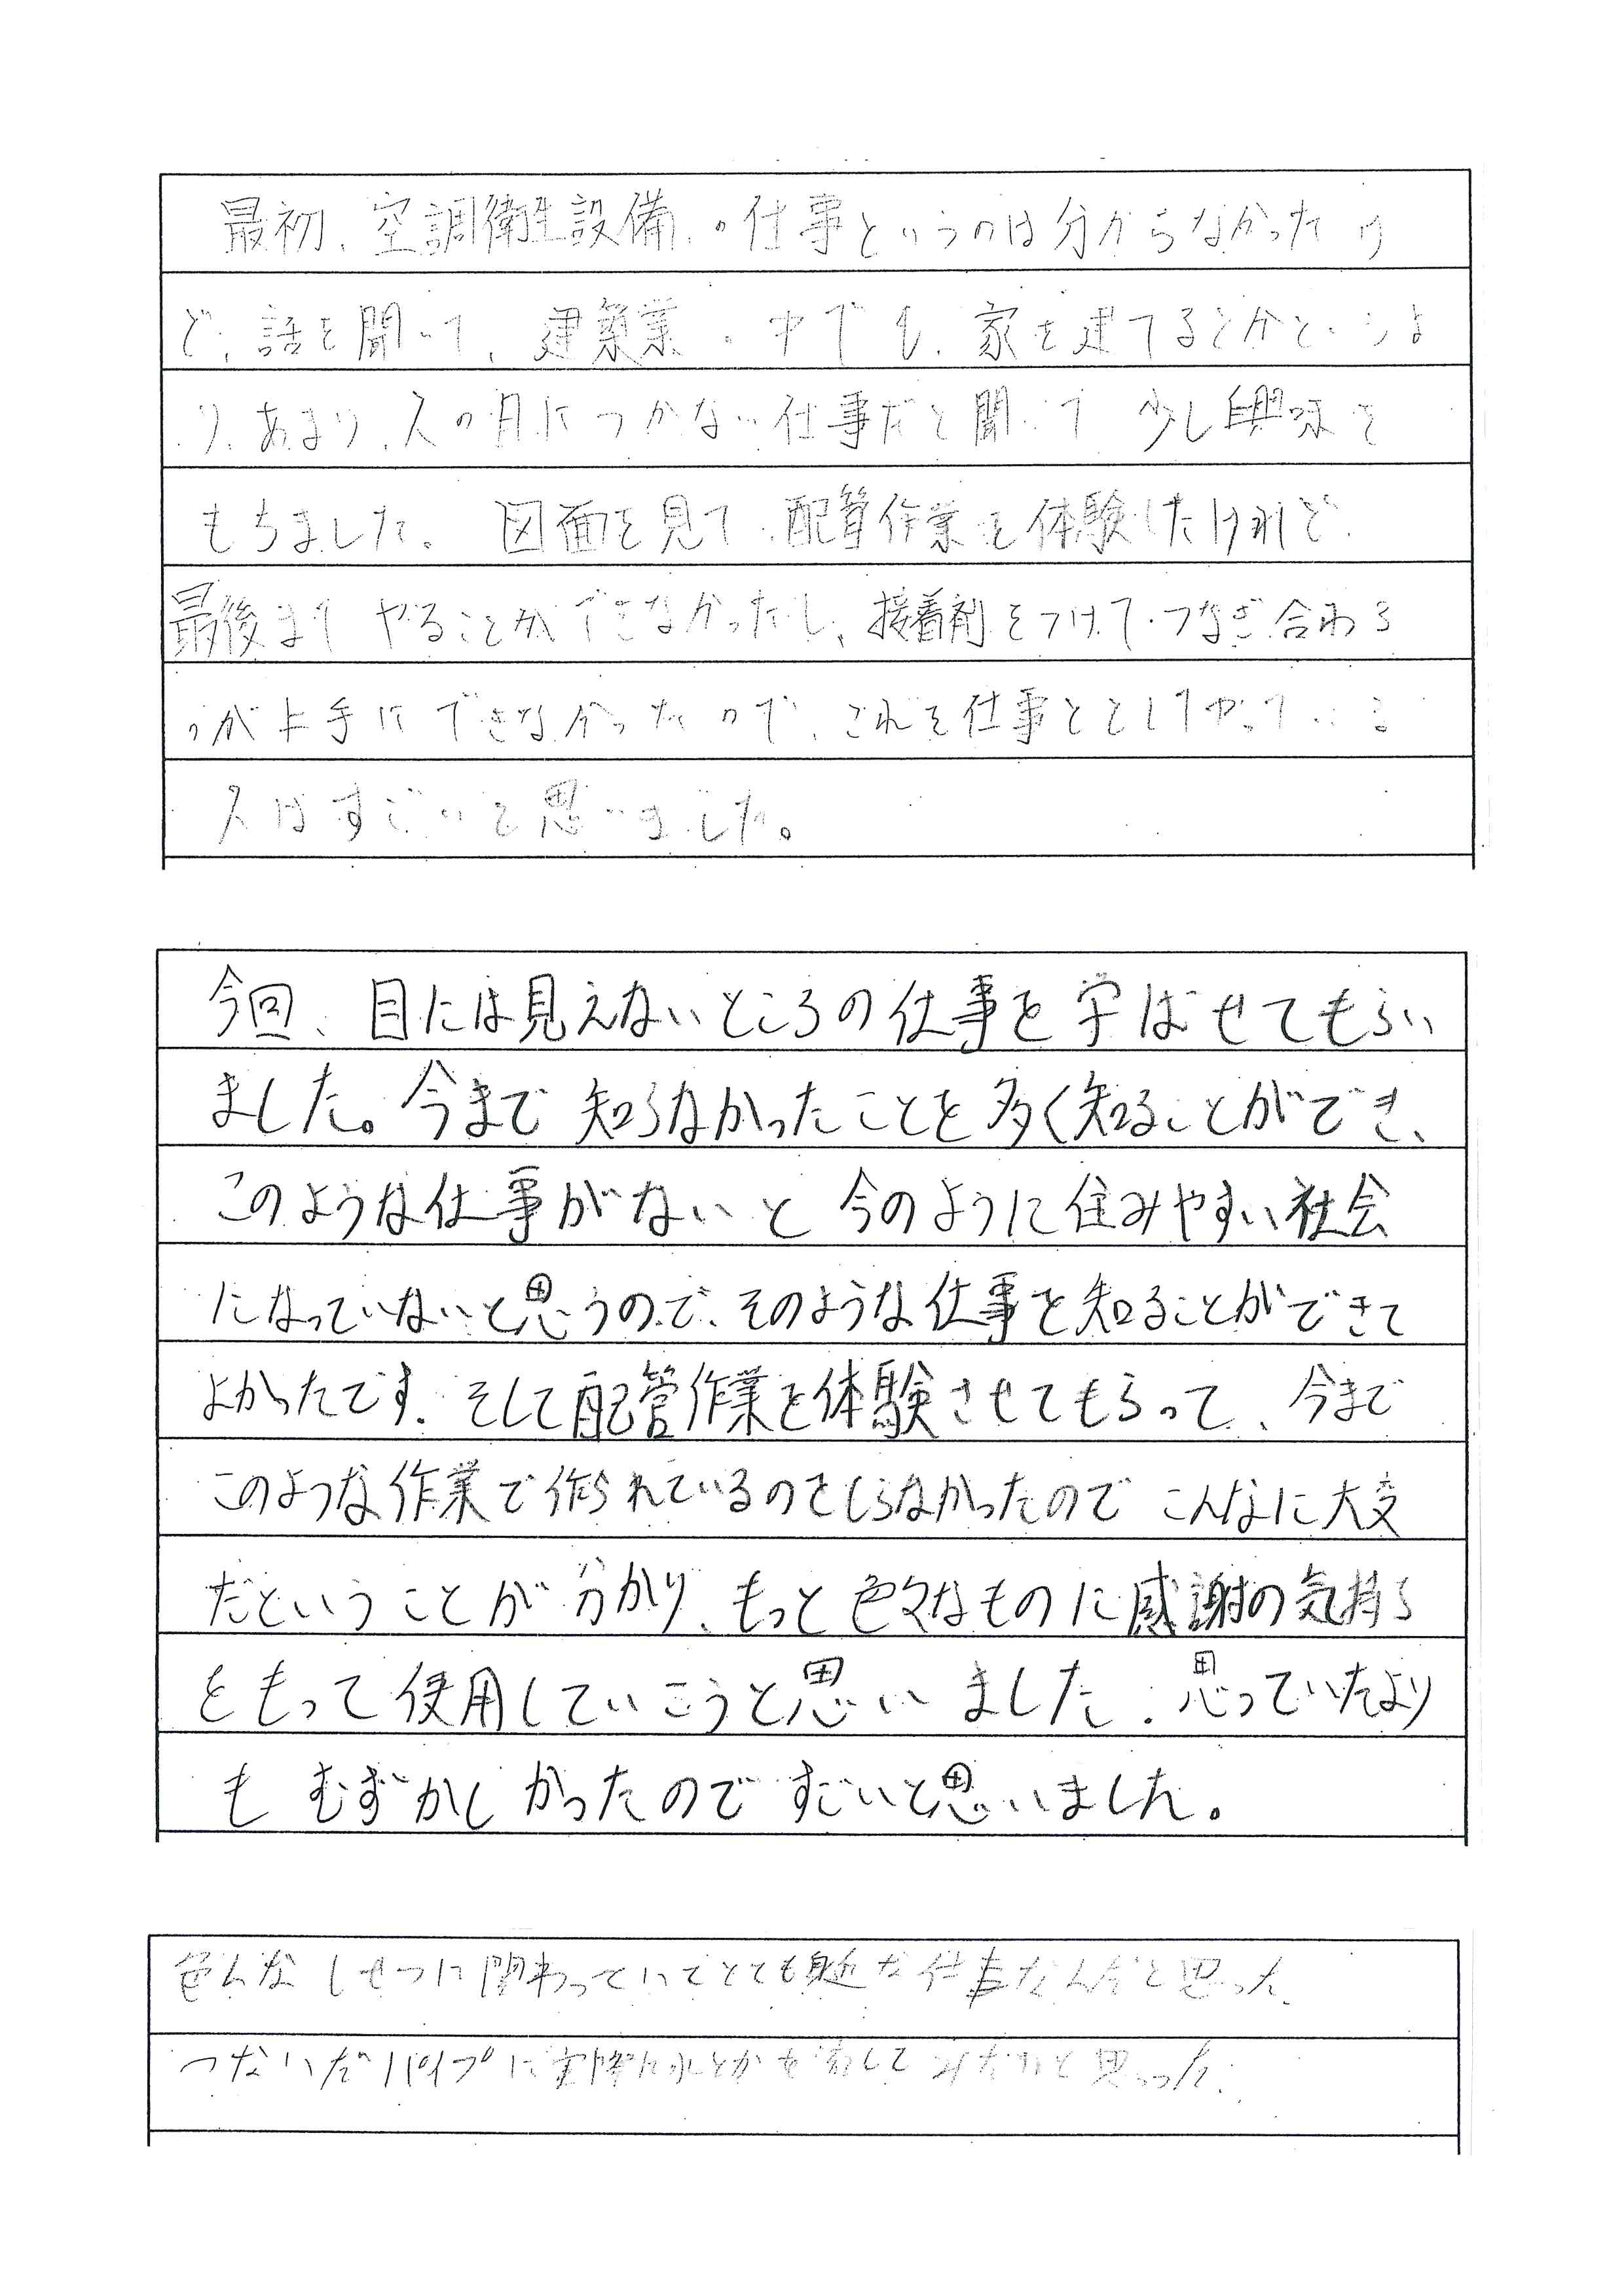 最初、空調衛生設備の仕事というのは分からなかったけ
ど、話を聞いて、建築業の中でも、家を建てるとかというよ
り、あまり、人の目につかない仕事だと聞いて少し興味を
もちました。図面を見て、配管作業を体験したけれど、
最後までやることができなかったし、接着剤をつけて、つなぎ合わる
のが上手にできなかったので、これを仕事ととしてやっている
人はすごいと思いました。
今回、目には見えないところの仕事を学ばせてもらい
ました。今まで知らなかったことを多く知ることができ、
このような仕事がないと今のように住みやすい社会
になっていないと思うので、そのような仕事を知ることができて
よかったです。そして配管作業を体験させてもらって、今まで
このような作業で作られているのをしらなかったのでこんなに大変
だということが分かり、もっと色々なものに感謝の気持ち
をもって使用していこうと思いました。思っていたより
もむずかしかったのですごいと思いました。
色んなしせつに関わっていてとても身近な仕事なんだと思った。
つないだパイプに実際に水とかを流してみたいと思った。